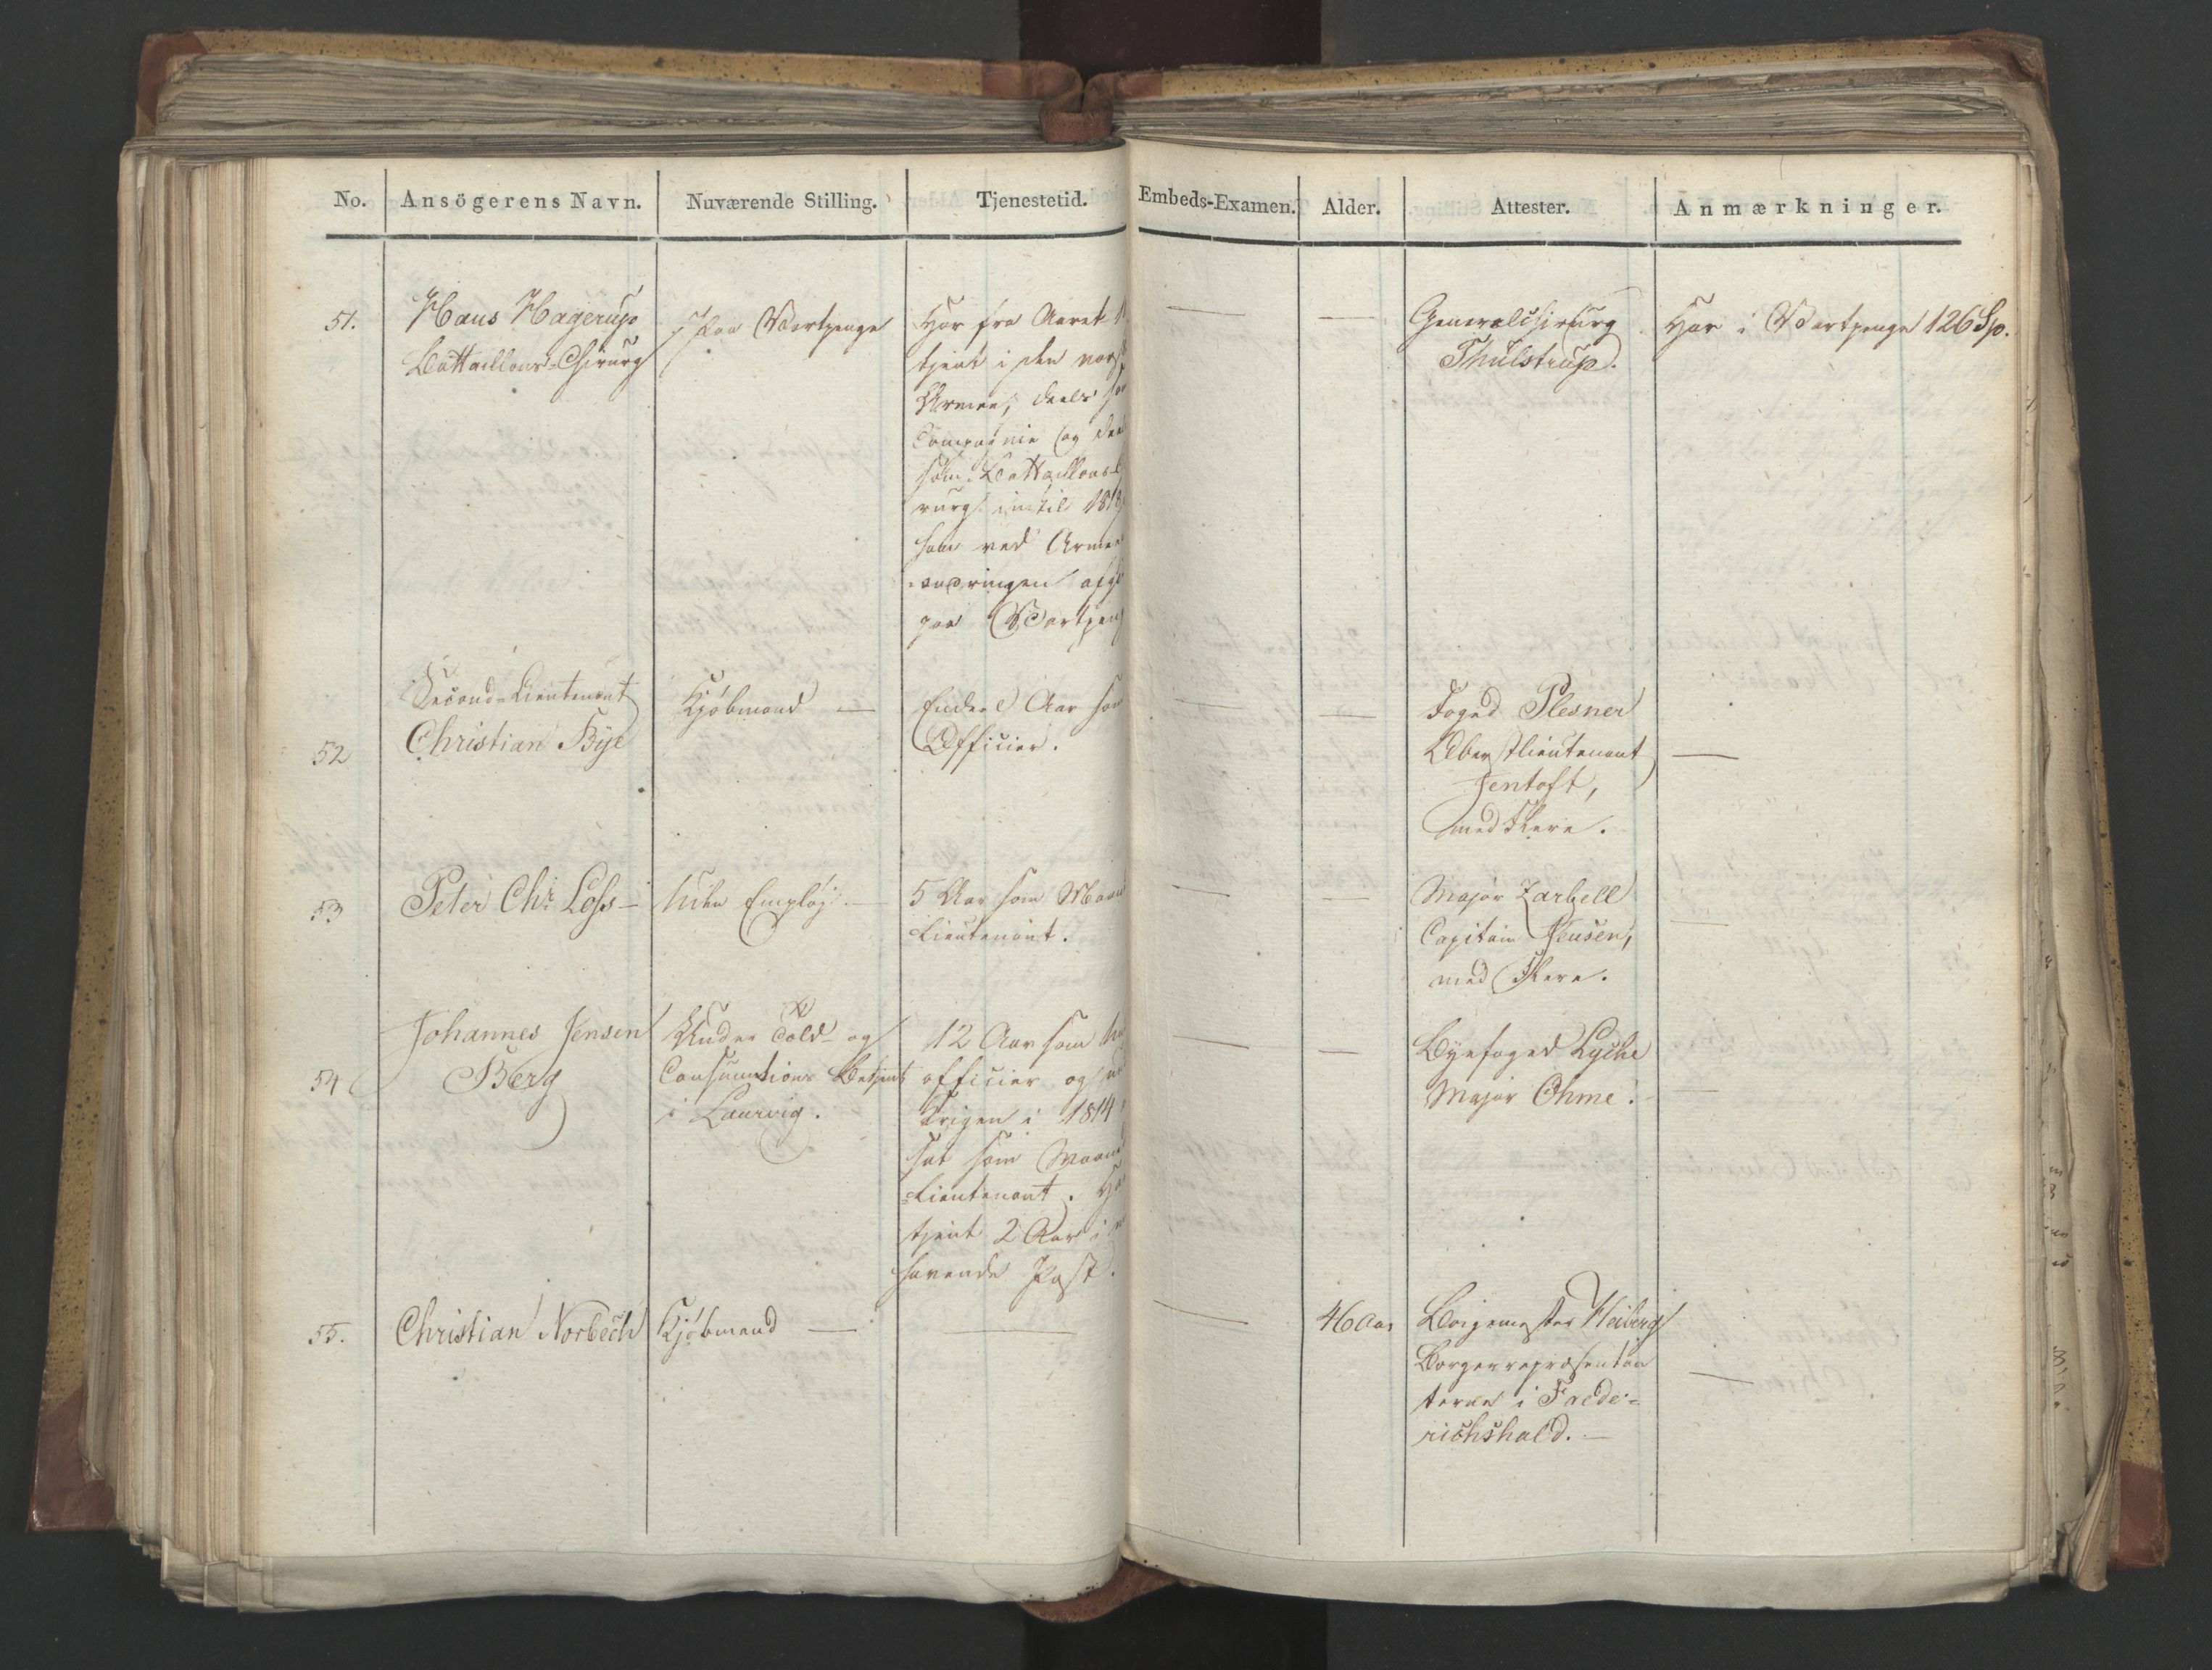 No. Ansögerens Navn. Nuværende Stilling. Tjenestetid. Embeds-Examen. Alder. Attester. Anmærkninger.
51.
Hans Hagerup
Battaillons-Chirurg
Paa Vartpenge
Har fra Aaret
tjent i den norske
Armee, deels
Compagnie og
som Battaillons-
rurg indtil 1818
som ved Armee
andringen afgik
paa Vartpeng
—
—
Generalchirurg
Thulstrup.
Har i Vartpenge 126 Sp.
52
Second-Lieutenant
Christian Bye
Kjöbmand —
Endeel Aar som
Officier.
—
—
Foged Plesner
Oberstlieutenant
Jentoft,
med Flere.
—
53
Peter Chr. Loss —
Uden Emploj. —
5 Aar som
Lieutenant.
—
—
Major Zarbell
Capitain Jensen,
med Flere.
—
54
Johannes Jensen
Berg
Under Told- og
Consumtions Betjent
i Laurvig.
12 Aar som
officier og
Krigen i 1814
sat som
-Lieutenant.
tjent 2 Aar i
havende Post.
—
—
Byefoged Lyche
Major Ohme.
—
55.
Christian Norbech
Kjöbmand —
—
—
46 Aar
Borgemester Heiberg
Borgerrepræsentan
terne i Frede-
richshald. —
—